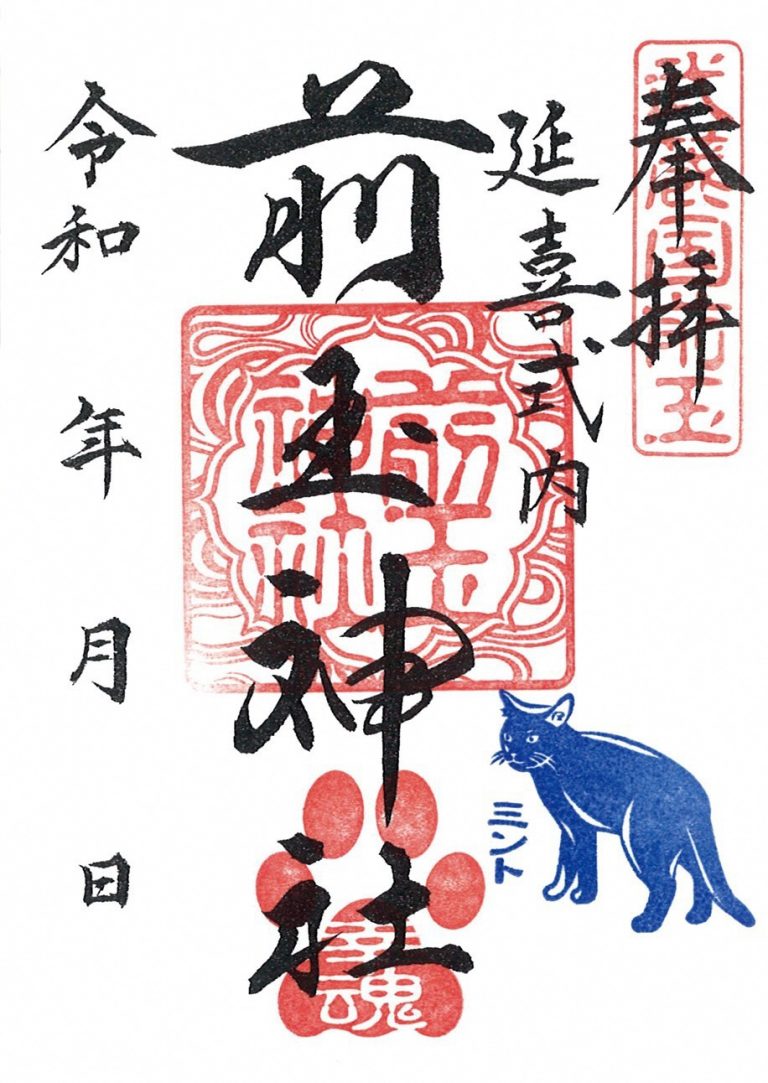 奉拝
武蔵国前玉
延喜式内
前玉神社
前玉神社
幸魂
ミント
令和 年 月 日